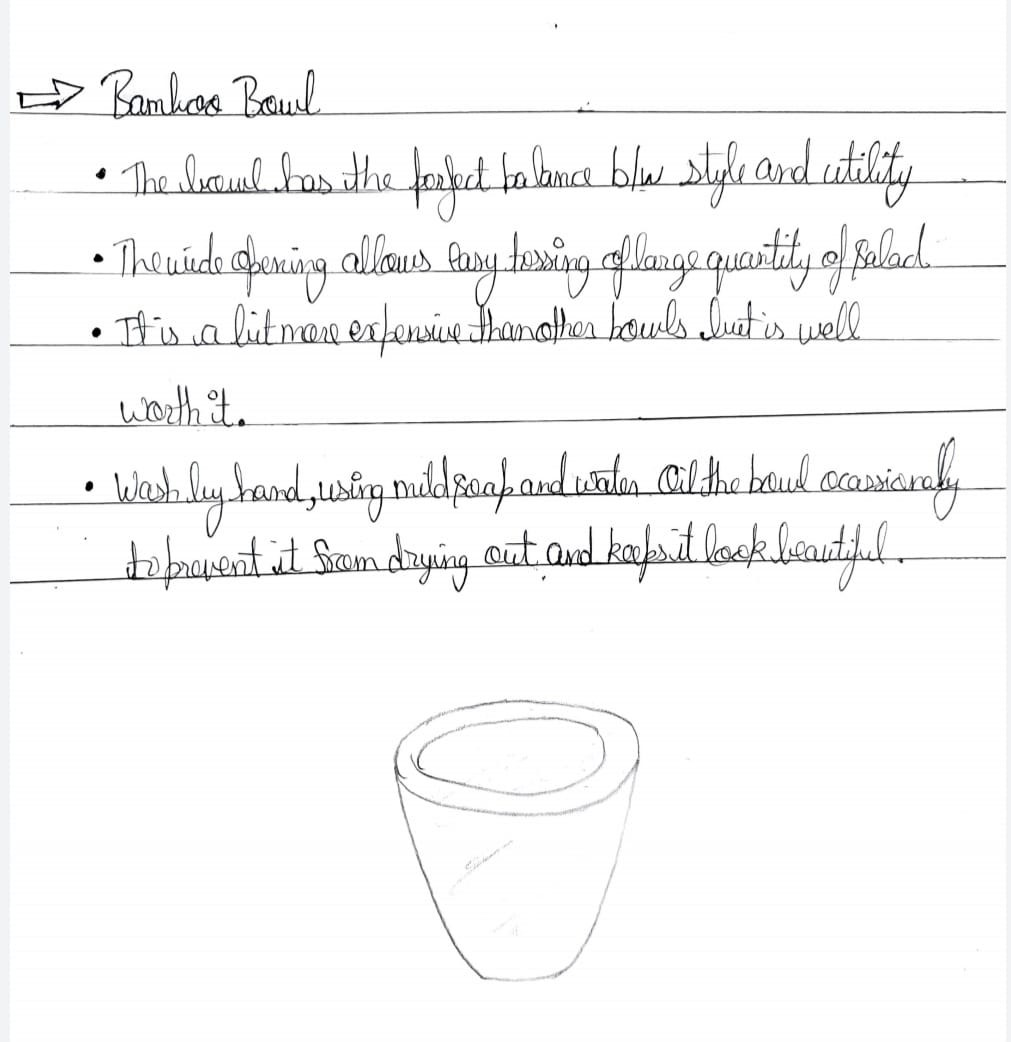 ⇒ Bamboo Bowl
• The bowl has the perfect balance b/w style and utility
• The wide opening allows easy tossing of large quantity of salad
• It is a bit more expensive than other bowls but is well
worth it.
• Wash by hand, using mild soap and water Oil the bowl ocassionaly
to prevent it from drying out and keeps it look beautiful.